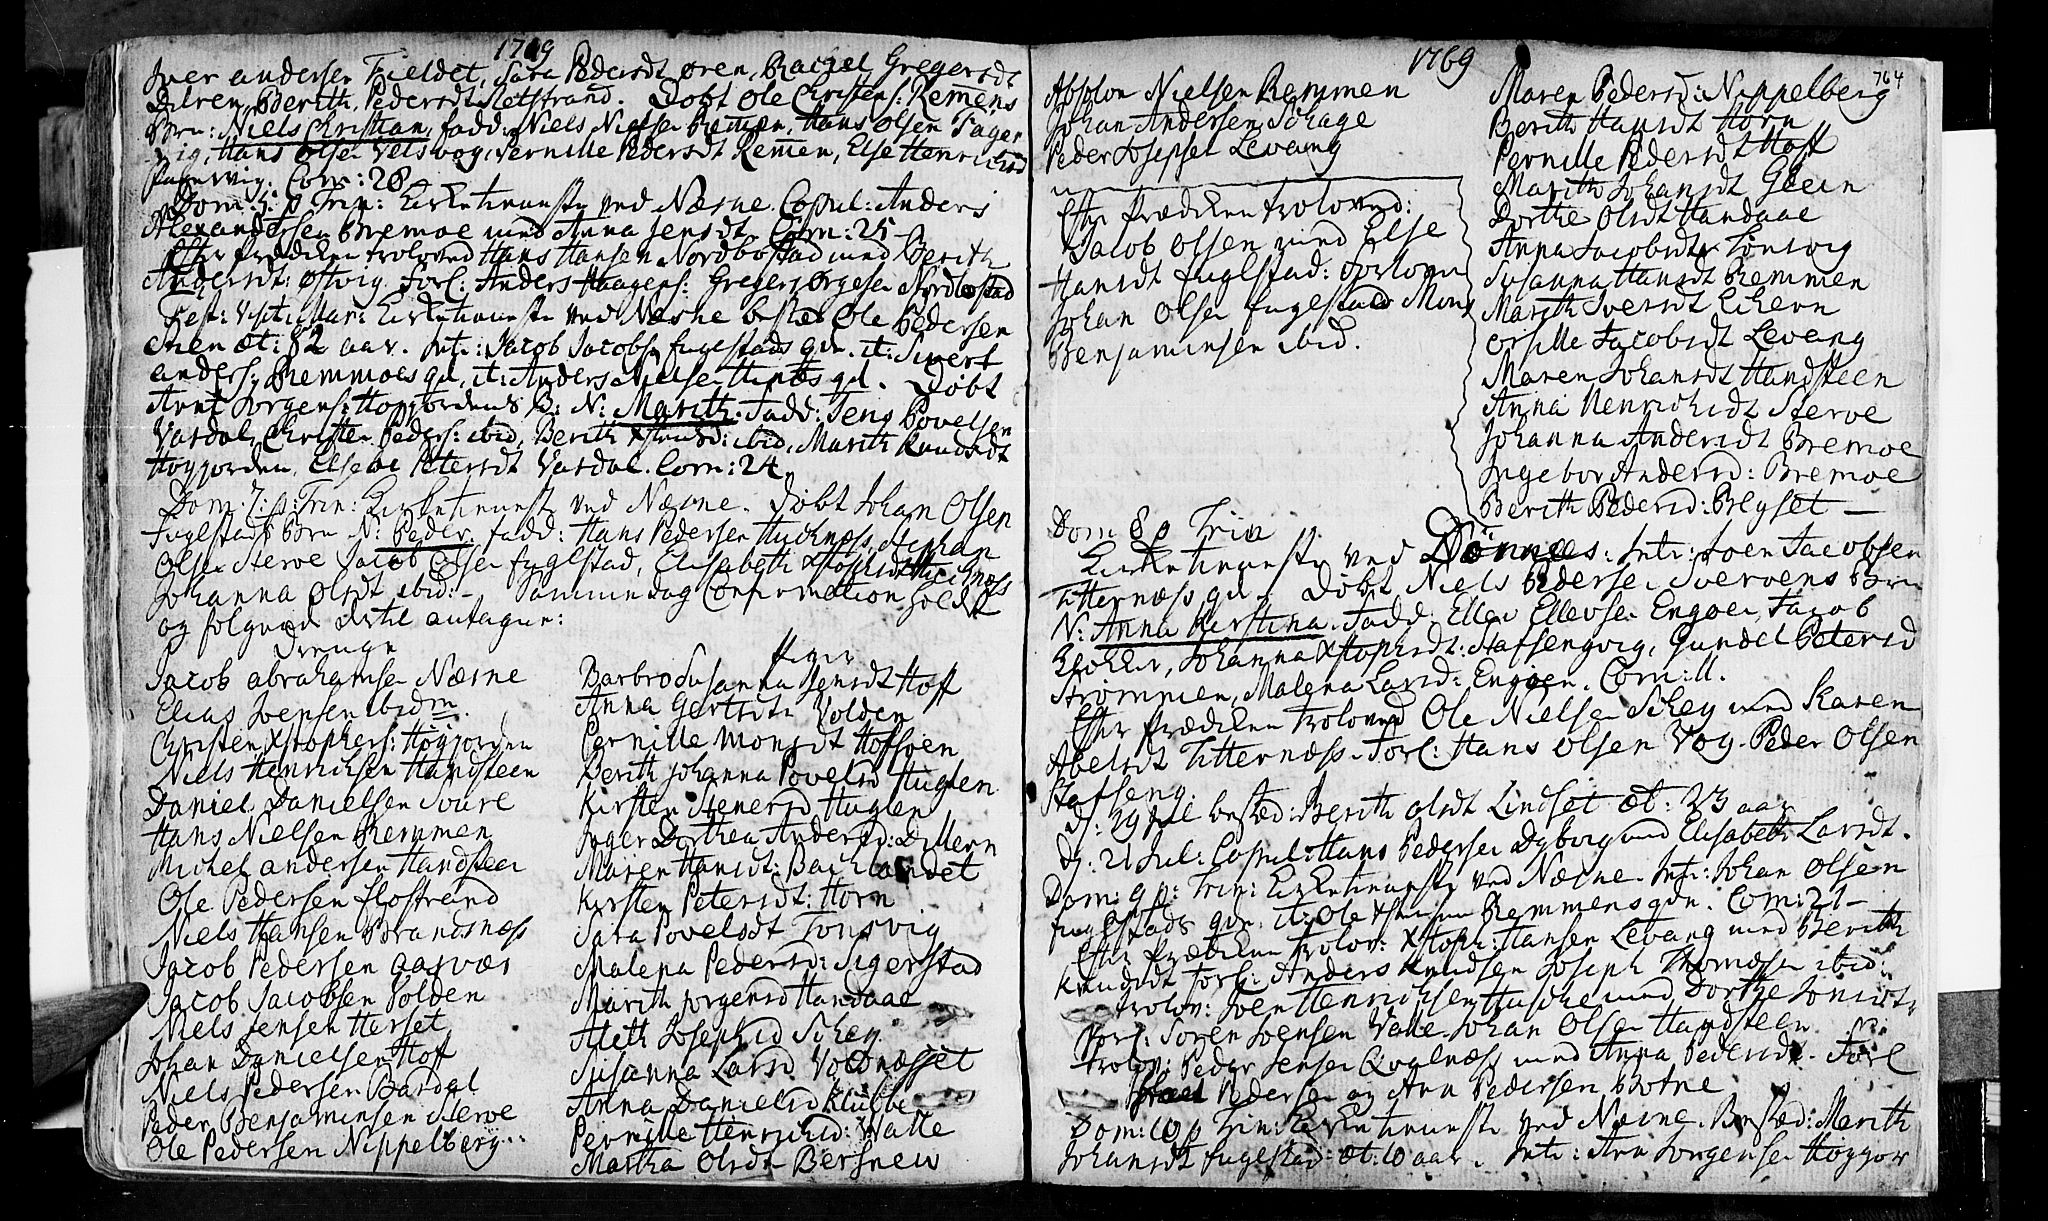 1769
Iver andersen Fieldet, Sara Pedersdt ören, Rachel Gregersdt
Dilren, Berith Pedersdt Slotstrand. Döbt Ole Christens: Remens
Brn: Niels Christian, fadd: Niels Nielsen Remen, Hans Olsen Fager
vig, Hans Olsen Velsvog, Pernille Pedersdt Remen, Else Henrichsd
Fagervig. Com: 28.
Dom: 5: p Trin: Kirketieneste ved Næsne. Copul: Anders
Alexandersen Bremoe med Anna Jensdt. Com: 25-
Efter Prædiken troloved Hans Hansen Nordbostad med Berith
Andersdt: Östvig Forl: Anders Haagens: Greger Jörgesen Nordbostad
Fest: Visit: Mar: Kirketieneste ved Næsne bested Ole Pedersen
æt: 82 aar. Intr: Jacob Jacobsen fuglestads qvn. it: Sivert
anders: Bremmoes qv, it: Anders Nielsen qd. Döbt
Arnt Jorgens: Høyjordens B: N: Marith. Fadd: Jens Povelsen
Vardal, Christen Peders: ibid, Berith Xstensd: ibid, Marith Knudsdt
Høyjorden, Elsebe Petersdt Vardal. Com: 24
Dom: 7: p: Trin: Kirketieneste ved Næsne. Döbt Johan Olsen
Fuglestads Brn N: Peder. fadd: Hans Pedersen Huchnæss, Stephan
Olsen Sterve Jacob Olsen fuglestad, Elisabeth Xstophsdt Huchnæss
Johanna Olsdt ibid:- Samme dag Confirmation holdt
og folgende dertil antagne:
Drenge
Jacob abrahamsen Næsne
Elias Joensen ibidm
Christen Xstophers: Höyjorden
Niels Henrichsen Handsteen
Daniel Danielsen Svare
Hans Nielsen Remmen
Michel andersen Handsteen
Ole Pedersen flostrand
Niels Hansen Brandsnæss
Jacob Pedersen aasvær
Jacob Jacobsen Volden
Niels Jensen Herset
Johan Danielsen Hoff
Niels Pedersen Bardal
Peder Benjaminsen Sterve
Ole Pedersen Nippelberg
Piger
Barbro Susanna Jensdt Hoff
Anna Gertsdt Volden
Pernille Monsdt Hofsoen
Berith Johanna Povelsd Huglen
Kirsten Stenersd Huglen
Inger Dorthea Andersd: Dillern
Maren Hansdt: Bachlandet
Kirsten Petersdt: Horn
Sara Povelsdt Tonsvig
Malena Pedersd: Sigerstad
Marith Jorgensd Handaae
Aleth Josephsd Schey
Susanna Larsd. Voldnæsset
Anna Danielsd Klubben
Pernille Henrichsd: Valle
Martha Olsdt Bersneu
1769
764
Absolon Nielsen Remmen
Johan Andersen Schage
Peder Josepsen Levang
Efter Prædiken troloved:
Jacob Olsen med Else
Hansdt fuglstad: Forlover
Johan Olsen fuglestad Mons
Benjaminsen ibid.
Maren Pedersd: Nippelberg
Berith Hansdt Horn
Pernille Pedersdt Hoff
Marith Johansdt Glein
Dorthe Olsdt Handaae
Anna Jacobsdt Tonsvig
Susanna Hansdt Remmen
Marith Iversdt Echern
Orsille Jacobsdt Levang
Maren Johansdt Handsteen
Anna Henrichsdt Sterve
Johanna Andersdt Bremoe
Ingebor Andersd: Bremoe
Berith Pedersd: Breyset -
Dom 8 p Trin
Kirketieneste ved Dönnæs: Intr: Joen Jacobsen
Titternæss qd - Döbt Niels Pedersen Svervens Brn
N: Anna Kirstina. Fadd: Ellev Ellevsen Engøen, Jacob
Klokker, Johanna Xstophsdt: Staffengvig, Gundel Petersd
Strømmen, Malena Larsd: Engøen. Com: 11.
Efter Prædiken trolovd Ole Nielsen Schey med Karen
Abelsdt Titternæss. Forl: Hans Olsen Vog. Peder Olsen
Stafseng.
D: 19 Jul bested: Berith Olsdt Lindset æt: 23 aar
D: 21 Jul: Copul: Hans Pedersen Dyborg med Elisabeth Larsdt.
Dom: 9 p: Trin: Kirketieneste ved Næsne. Intr: Johan Olsen
fuglestads qvn, it: Ole Xstensen Remmens qvn. Com: 21-
Efter Prædiken trolov: Xstoph: Hansen Levang med Berith
Knudsdt Forl: Anders Knudsen Joseph Thomæsen ibid:
trolov: Joen Henrichsen Husche med Dorthe Jonsdt.
Forl: Soren Joensen Valle. Johan Olsen Handsteen
trolov: Peder Jensen Qvalnæss med Anna Pedersdt. Forl
Pedersen og Arn Pedersen Botne
Dom: 10 p Trin: Kirketieneste ved Næsne. Bested: Marith
Johansdt fuglestad æt: 10 aar. Intr: Arn Jorgensen Høyjor